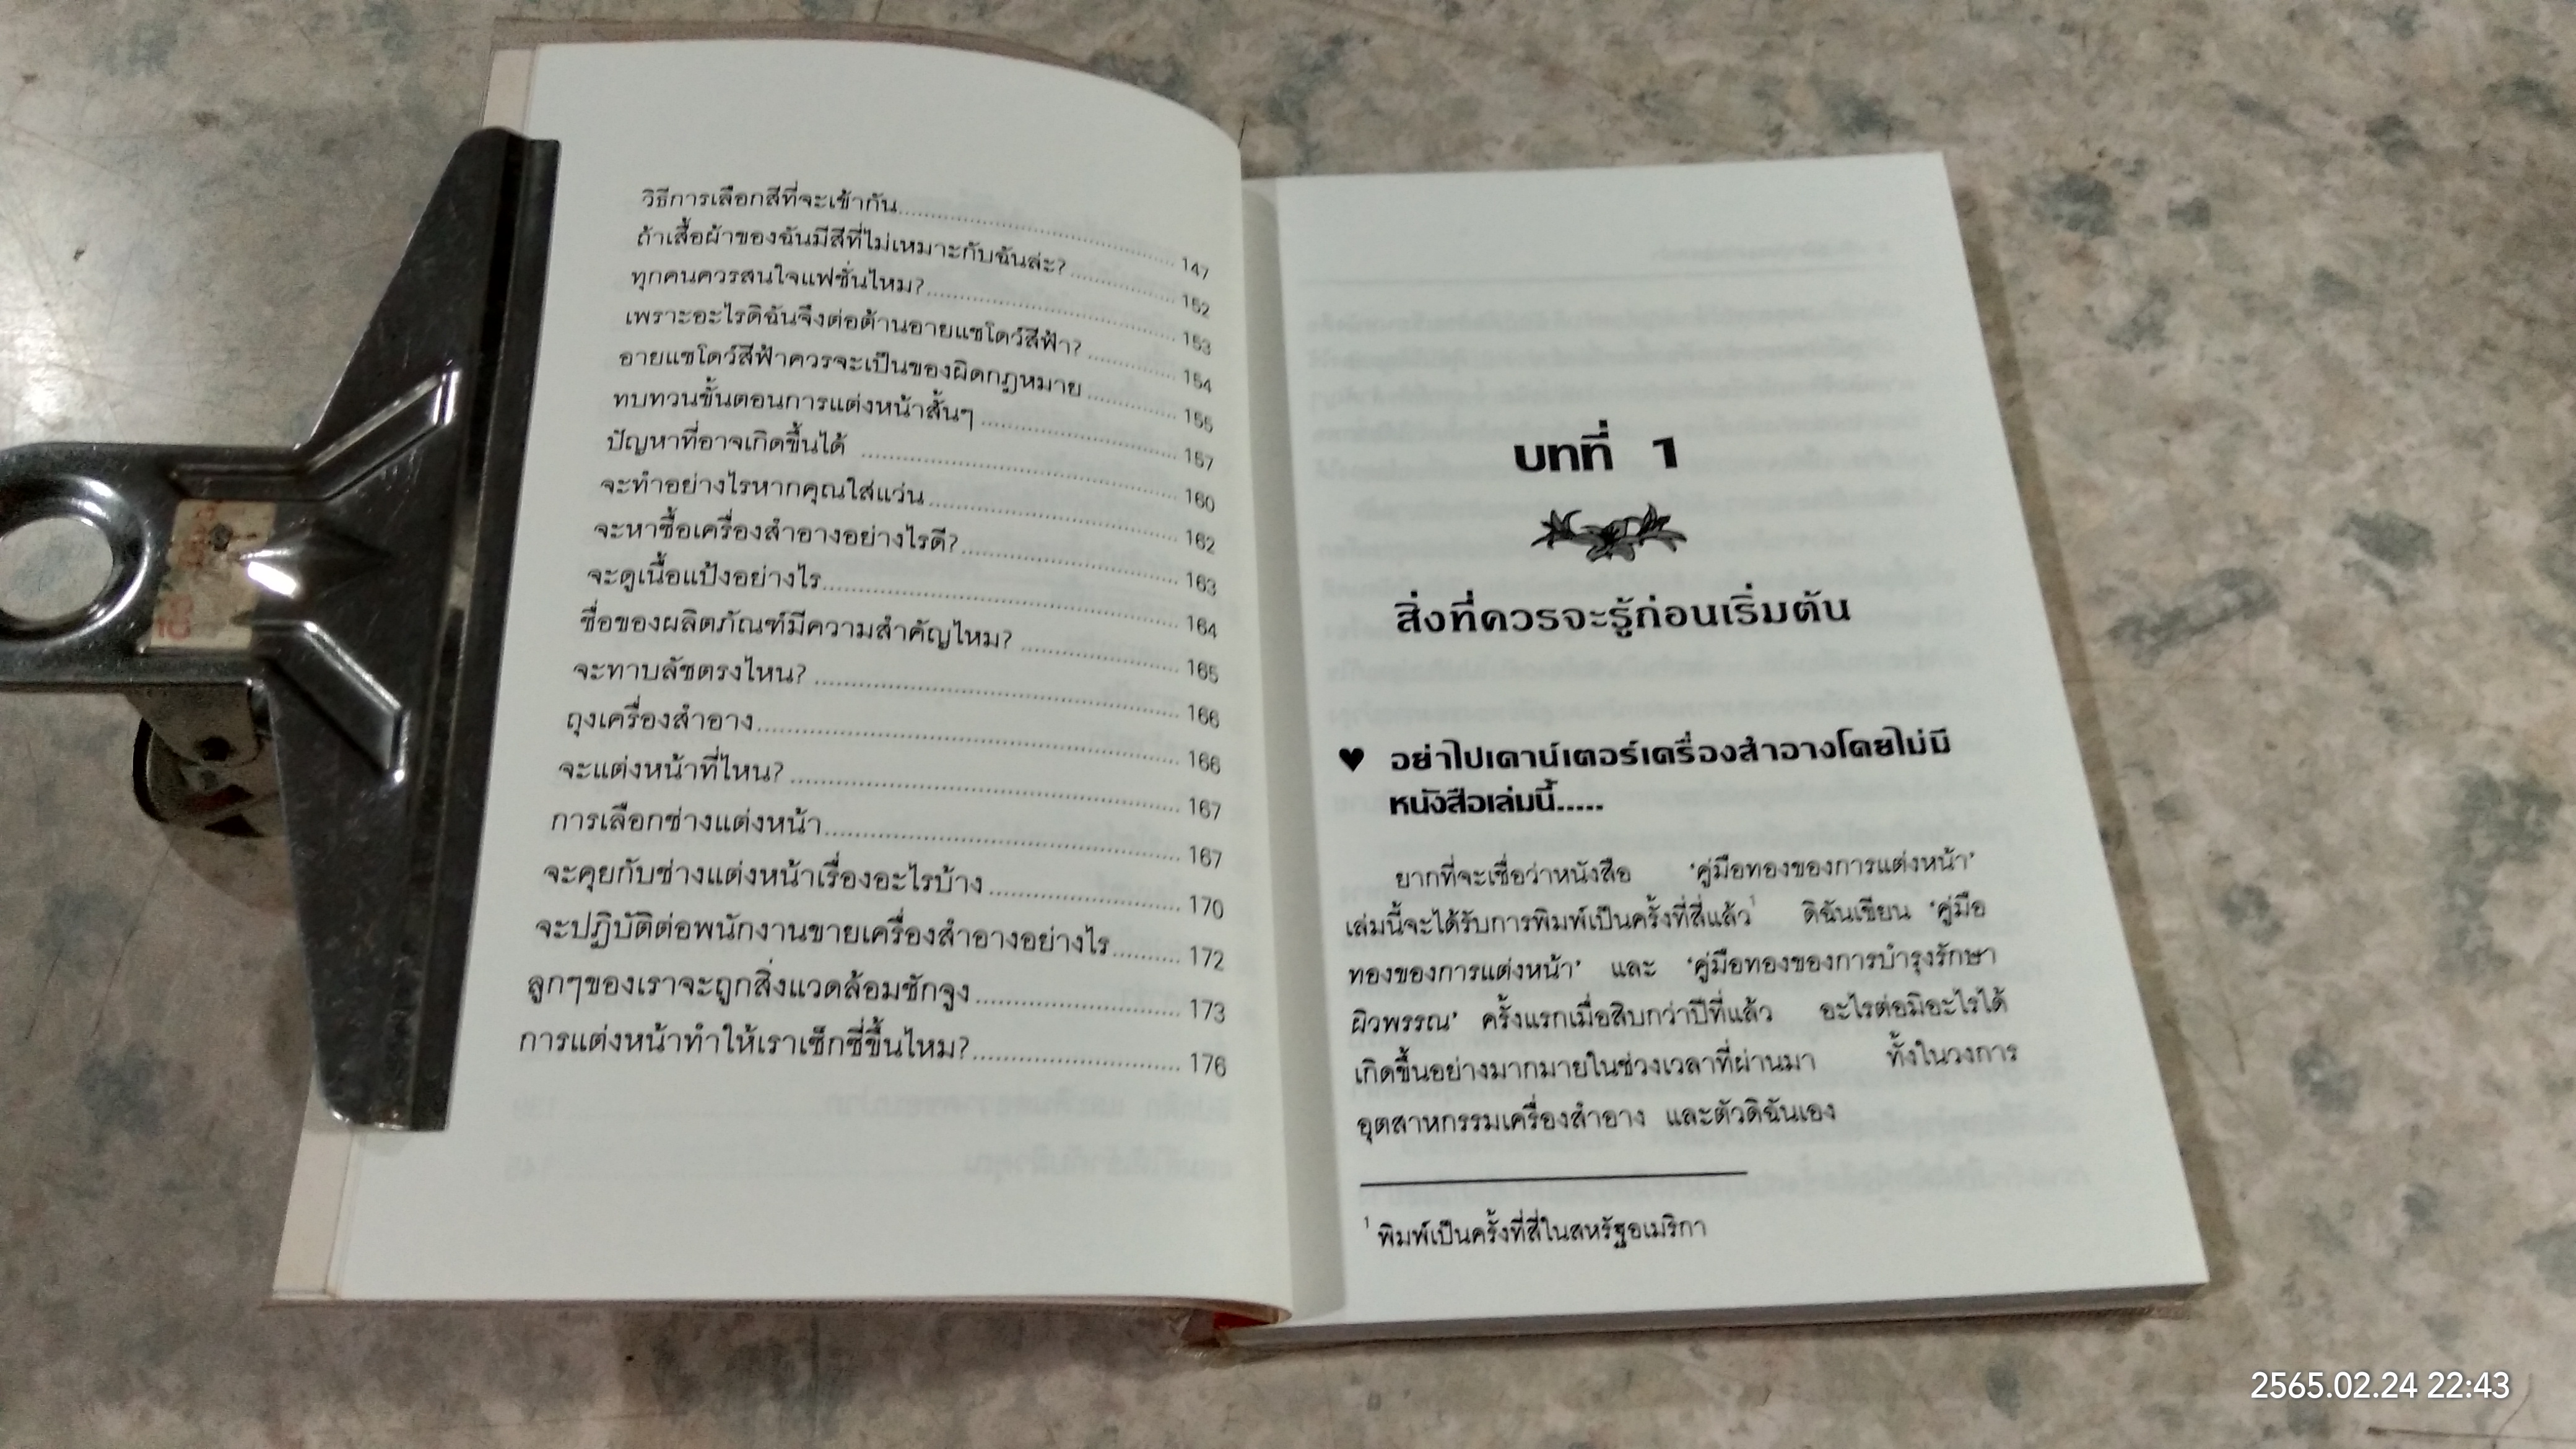 วิธีการเลือกสีที่จะเข้ากัน.......... 147
ถ้าเสื้อผ้าของฉันมีสีที่ไม่เหมาะกับฉันล่ะ?.......... 152
ทุกคนควรสนใจแฟชั่นไหม?.......... 153
เพราะอะไรดิฉันจึงต่อต้านอายแชโดว์สีฟ้า?.......... 154
อายแชโดว์สีฟ้าควรจะเป็นของผิดกฎหมาย.......... 155
ทบทวนขั้นตอนการแต่งหน้าสั้นๆ.......... 157
ปัญหาที่อาจเกิดขึ้นได้.......... 160
จะทำอย่างไรหากคุณใส่แว่น.......... 162
จะหาซื้อเครื่องสำอางอย่างไรดี?.......... 163
จะดูเนื้อแป้งอย่างไร.......... 164
ชื่อของผลิตภัณฑ์มีความสำคัญไหม?.......... 165
จะทาบลัชตรงไหน?.......... 166
ถุงเครื่องสำอาง.......... 166
จะแต่งหน้าที่ไหน?.......... 167
การเลือกช่างแต่งหน้า.......... 167
จะคุยกับช่างแต่งหน้าเรื่องอะไรบ้าง.......... 170
จะปฏิบัติต่อพนักงานขายเครื่องสำอางอย่างไร.......... 172
ลูกๆของเราจะถูกสิ่งแวดล้อมชักจูง.......... 173
การแต่งหน้าทำให้เราเซ็กซี่ขึ้นไหม?.......... 176
บทที่ 1
สิ่งที่ควรจะรู้ก่อนเริ่มต้น
♥ อย่าไปเคาน์เตอร์เครื่องสำอางโดยไม่มี
หนังสือเล่มนี้.....
ยากที่จะเชื่อว่าหนังสือ 'คู่มือทองของการแต่งหน้า'
เล่มนี้จะได้รับการพิมพ์เป็นครั้งที่สี่แล้ว¹ ดิฉันเขียน 'คู่มือ
ทองของการแต่งหน้า' และ 'คู่มือทองของการบำรุงรักษา
ผิวพรรณ' ครั้งแรกเมื่อสิบกว่าปีที่แล้ว อะไรต่อมิอะไรได้
เกิดขึ้นอย่างมากมายในช่วงเวลาที่ผ่านมา ทั้งในวงการ
อุตสาหกรรมเครื่องสำอาง และตัวดิฉันเอง
¹ พิมพ์เป็นครั้งที่สี่ในสหรัฐอเมริกา
2565.02.24 22:43